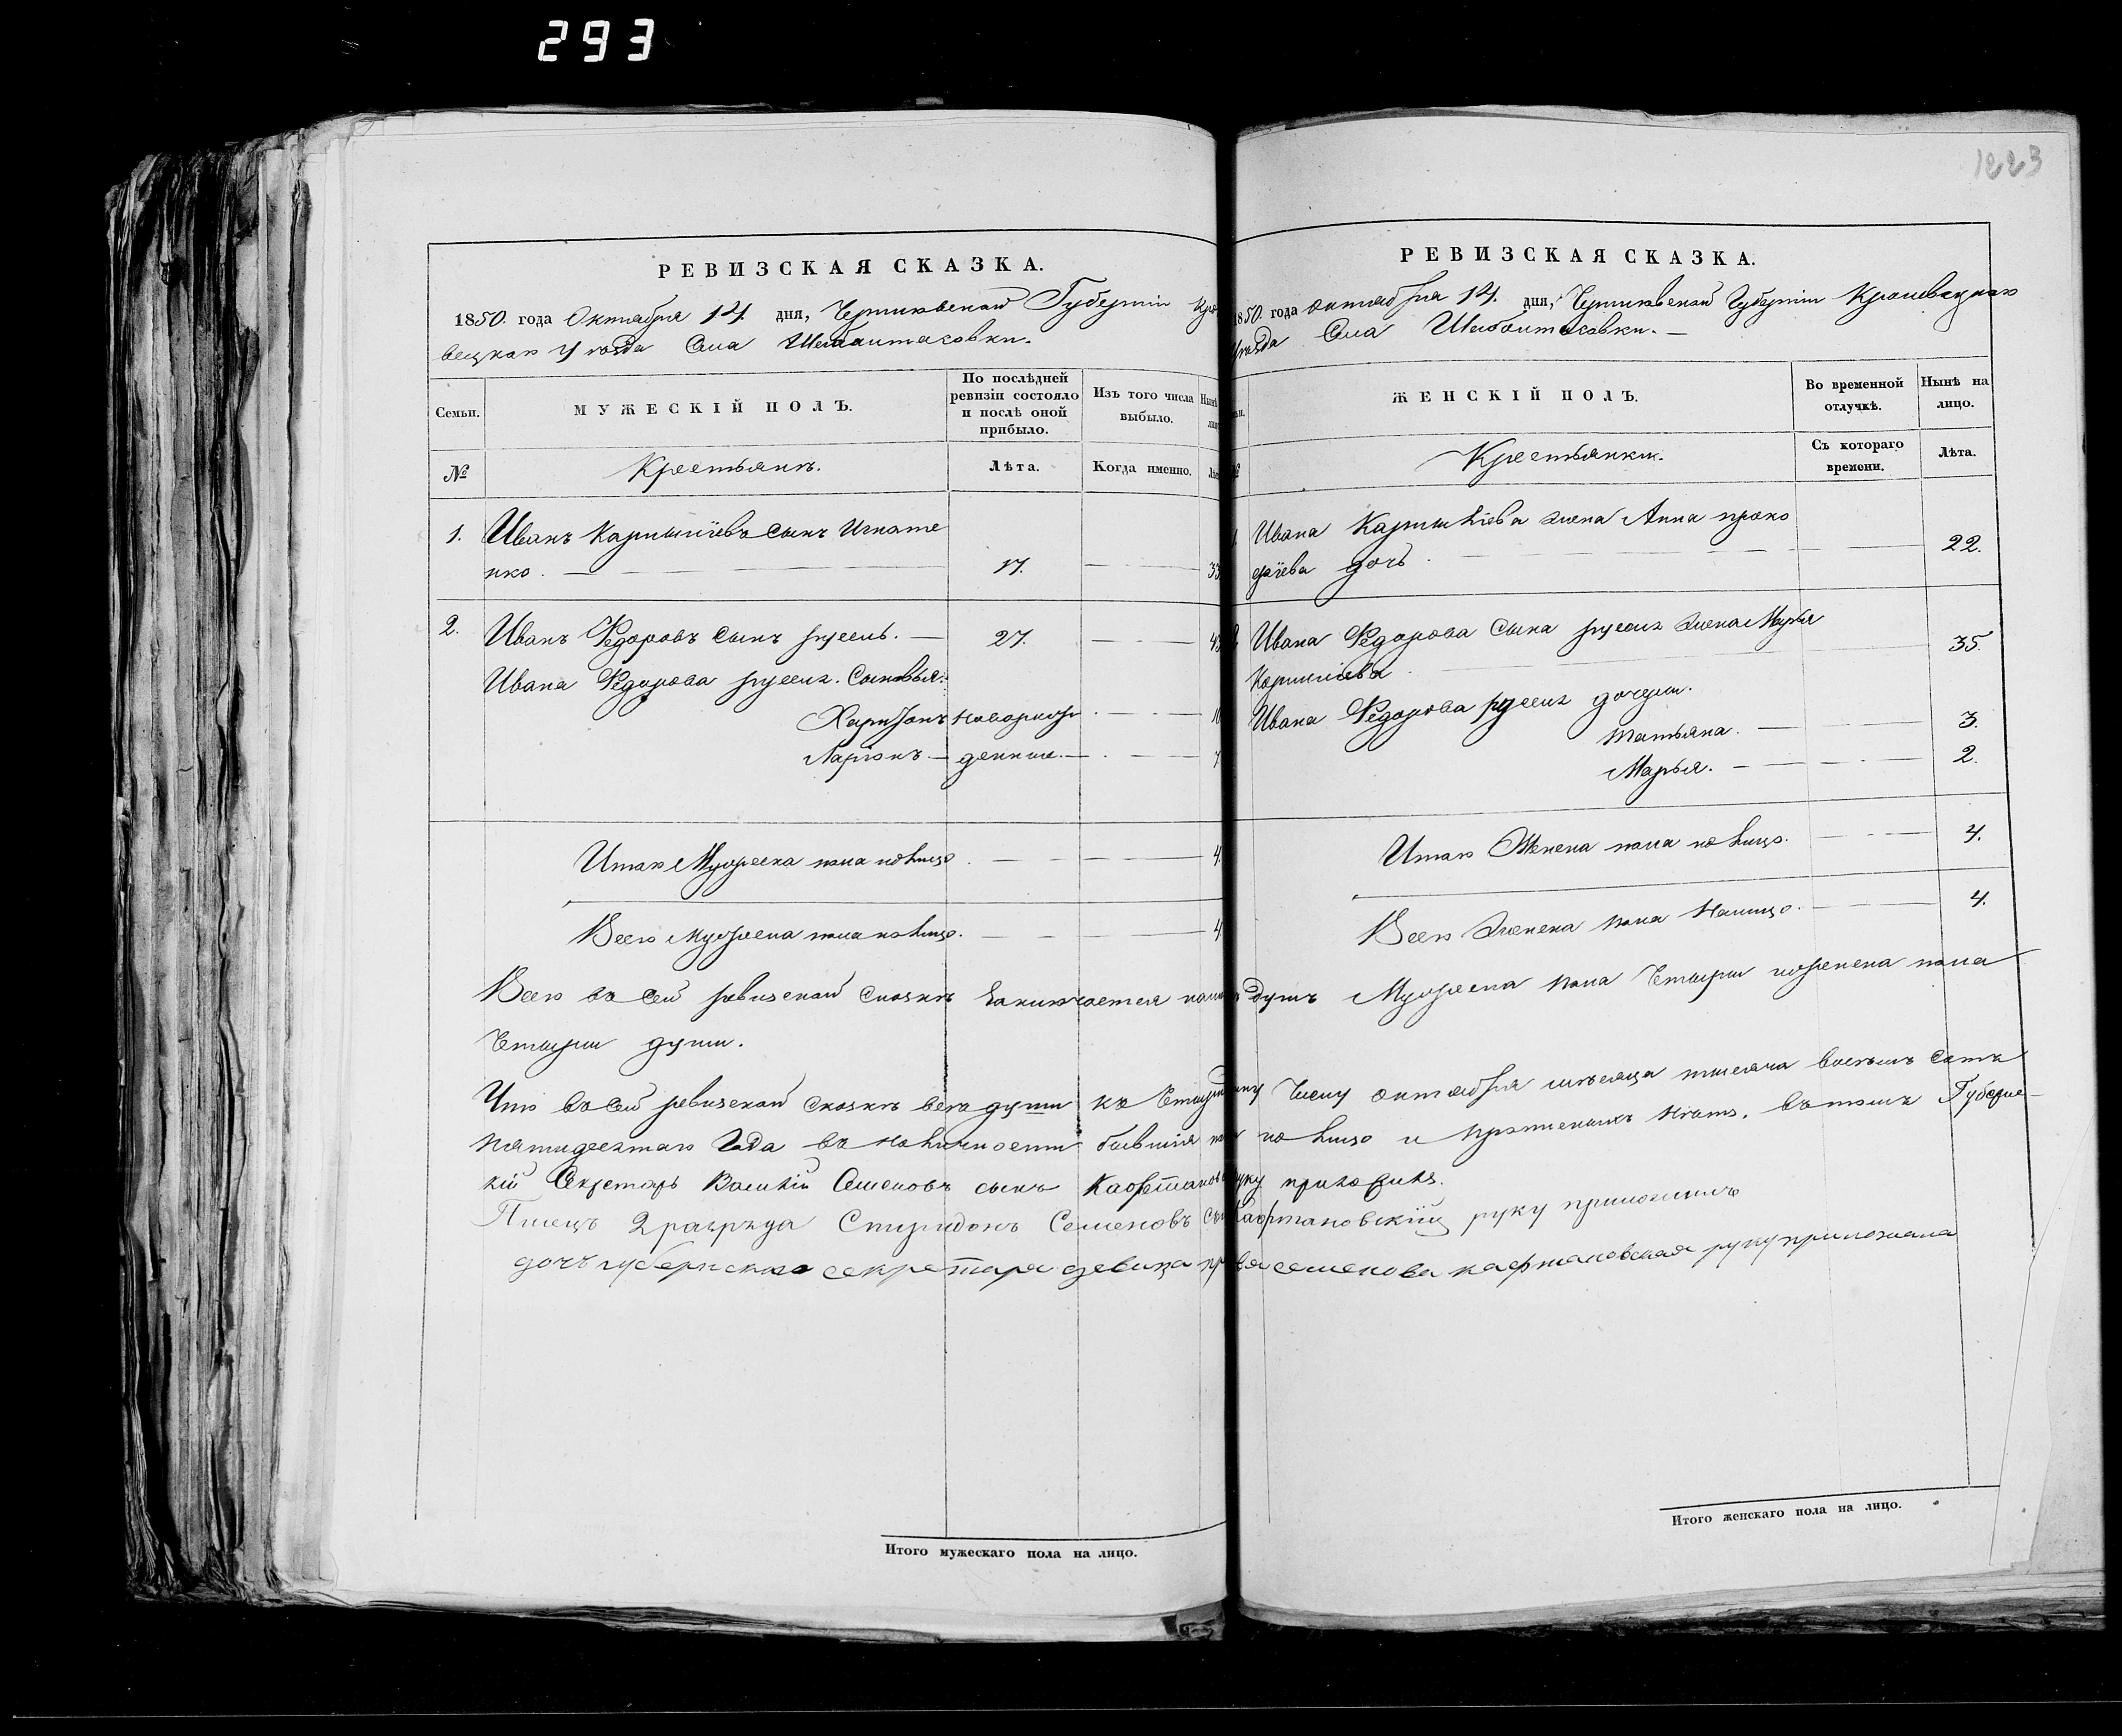 293
1223
РЕВИЗСКАЯ СКАЗКА.
1850. года Октября 14. дня, Черниговской Губерніи Кро
вецкаго Уѣзда Села Шабалтасовки.
Семьи.
МУЖЕСКІЙ ПОЛЪ.
По послѣдней ревизіи состояло и послѣ оной прибыло.
Изъ того числа выбыло.
Нынѣ
№
Крестьянъ.
Лѣта.
Когда именно.
1. Иванъ Карпиліевъ сынъ Игнате
нко. — 17. — 33
2. Иванъ Федоровъ сынъ — 27. — 43
Ивана Федорова Сыновья:
Харитонъ новорож — 10
Ларіонъ — денные. — 7
Итого Мужеска пола на лицо. — 4.
Всего мужеска пола на лицо. — 4.
РЕВИЗСКАЯ СКАЗКА.
1850. года октября 14. дня, Черниговской Губерніи Кролевецкаго
Уѣзда Села Шабалтасовки. —
ЖЕНСКІЙ ПОЛЪ.
Во временной отлучкѣ.
Нынѣ на лицо.
Крестьянки.
Съ котораго времени.
Лѣта.
Ивана Карпиліева жена Анна проко
фіева дочь. — 22.
Ивана Федорова Сына жена Марья
Карпиліева — 35.
Ивана Федорова дочери.
Татьяна. — 3.
Марья. — 2.
Итого Женска пола на лицо. — 4.
Всего женска пола На лицо. — 4.
Всего въ сей ревизской сказкѣ Заключается душъ Мужеска пола Четыри и женска пола
Четыри души.
Что въ сей ревизской сказкѣ всѣ души къ Четырнадцатому Числу октября мѣсяца тысяча восемь сотъ
пятидесятаго Года въ наличности бывшія на лицо и прописныхъ нѣтъ. въ томъ Губернс-
кій Секретарь Василій Семеновъ сынъ Кафтановскій руку приложилъ.
Писецъ 2 разряда Спиридонъ Семеновъ сынъ Кафтановскій руку приложилъ
дочь губернскаго секретаря девица семенова кафтановская руку приложила
Итого мужескаго пола на лицо.
Итого женскаго пола на лицо.